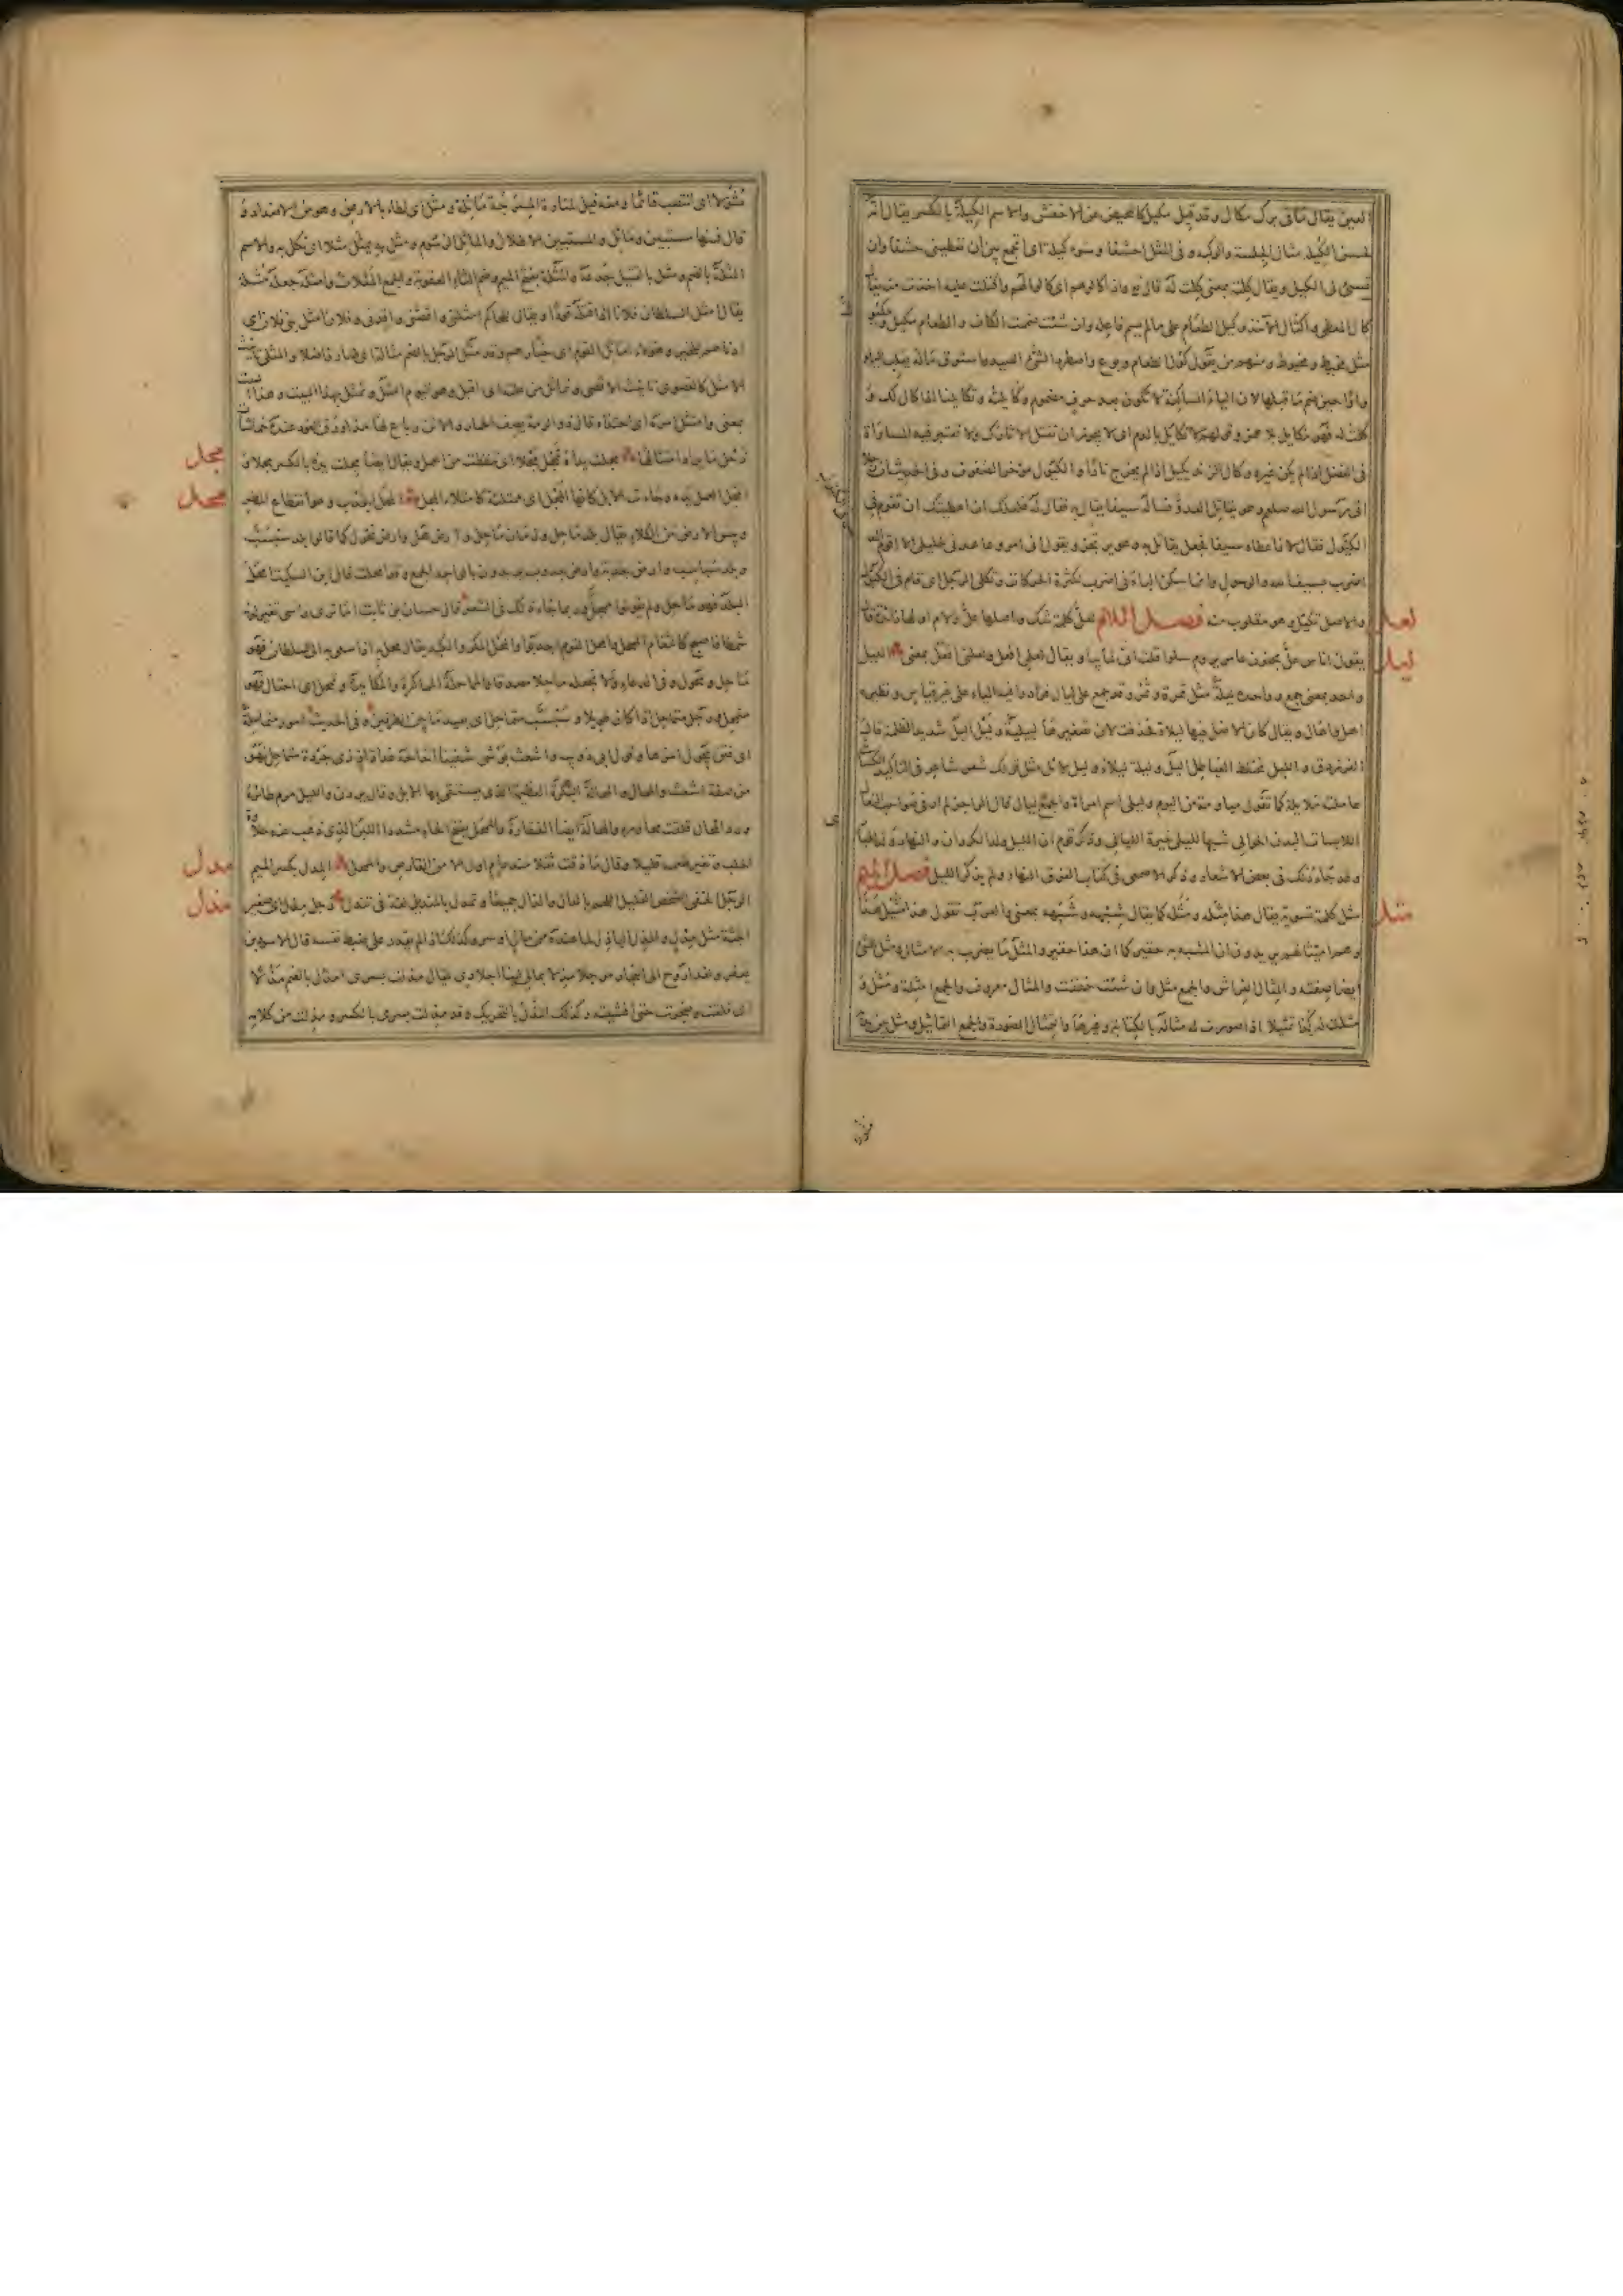 العين يقال ما فى برك مكال وقد قيل مكيل كالمحيض عن الاخفش والاسم الكيلة بالكسر يقال انه
لحسن الكيلة مثال الجلسة والركبة وفى المثل احشفا وسوء كيلة اى اتجمع بين ان تعطينى حشفا وان
تسىء فى الكيل ويقال كلته بمعنى كلت له قال تع واذا كالوهم اى كالوا لهم واكتلت عليه اخذت منه يقال
كال المعطى واكتال الآخذ وكيل الطعام على ما لم يسم فاعله وان شئت ضممت الكاف والطعام مكيل ومكيول
مثل مخيط ومخيوط ومنهم من يقول كول الطعام وبوع واصطود الصيد واستوق ماله بقلب الياء
واوا حين ضم ما قبلها لان الياء الساكنة لا تكون بعد حرف مضموم وكايلته وتكايلنا اذا كال لك و
كلت له فهو مكايل بلا همز وقولهم لا تكايل بالدم اى لا يجوز ان تقتل الا ثارك ولا تعتبر فيه المساواة
فى الفضل اذا لم يكن غيره وكال الزند يكيل اذا لم يخرج نارا والكيول مؤخر الصفوف وفى الحديث ان رجلا
اتى رسول الله صلعم وهو يقاتل العدو فساله سيفا يقاتل به فقال له فلعلك ان اعطيتك ان تقوم فى
الكيول فقال لا فاعطاه سيفا فجعل يقاتل به وهو يرتجز ويقول انى امرؤ عاهدنى خليلى الا اقوم الدهر
اضرب بسيف الله والرسول وانما سكن الباء فى اضرب لكثرة الحركات وتكلى الرجل اى قام فى الكيول
لعل
والاصل تكيل وهو مقلوب منه فصل اللام لعل كلمة شك واصلها عل واللام اولها زائدة قال
ليل
يقول اناس عل مجنون عامر يروم سلوا قلت انى لما بيا ويقال لعلى افعل ولعلنى افعل بمعنى الليل
واحد بمعنى جمع وواحده ليلة مثل تمرة وتمر وقد جمع على ليال فزادوا فيه الياء على غير قياس ونظيره
اهل واهال ويقال كان الاصل فيها ليلاة فحذفت لان تصغيرها لييلية وليل اليل شديد الظلمة قال
الفرزدق والليل مختلط الغياطل اليل وليلة ليلاء وليل لائل مثل قولك شعر شاعر فى التاكيد الكسائى
عاملته ملايلة كما تقول مياومة من اليوم وليلى اسم امراة والجمع ليالى قال الراجز لم ار فى صواحب النعال
اللابسات البدن الحوالى شبها لليلى خيرة الليالى وذكر قوم ان الليل ولد الكروان والنهار ولد الحبارى
وقد جاء ذلك فى بعض الاشعار وذكر الاصمعى فى كتاب الفرق النهار ولم يذكر الليل فصل الميم
مثل
مثل كلمة تسوية يقال هذا مثله ومثله كما يقال شبهه وشبهه بمعنى والعرب تقول هذا مثيل هذا
وهم اميثالهم يريدون ان المشبه به حقير كما ان هذا حقير والمثل ما يضرب به الامثال ومثل الشىء
ايضا صفته والمثال الفراش والجمع مثل وان شئت خففت والمثال معروف والجمع امثلة ومثل و
مثلت له كذا تمثيلا اذا صورت له مثاله بالكتابة وغيرها والتمثال الصورة والجمع التماثيل ومثل بين يديه
مثولا اى انتصب قائما ومنه قيل لمنارة المسرجة ماثلة ومثل اى لطاء بالارض وهو من الاضداد و
قال فمنها مستبين وماثل والمستبين الاطلال والماثل الرسوم ومثل به يمثل مثلا اى نكل به والاسم
المثلة بالضم ومثل بالقتيل جدعه والمثلة بفتح الميم وضم الثاء العقوبة والجمع المثلات وامثله جعله مثلة
يقال امثل السلطان فلانا اذا قتله قودا ويقال للحاكم امثلنى واقصنى واقدنى وفلان امثل بنى فلان اى
ادناهم للخير وهؤلاء اماثل القوم اى خيارهم وقد مثل الرجل بالضم مثالة اى صار فاضلا والمثلى تانيث
الامثل كالقصوى تانيث الاقصى وتماثل من علته اى اقبل وهو اليوم امثل وتمثل بهذا البيت وهذا البيت
بمعنى وامتثل امره اى احتذاه قال ذو الرمة يصف الحمار والاتن
مجل
مجلت يداه تمجل مجلا اى تنفطت من العمل ويقال ايضا مجلت يده بالكسر مجلا و
محل
امجل العمل يده وجاءت الابل كانها المجل اى ممتلئة كامتلاء المجل المحل الجدب وهو انقطاع المطر
ويبس الارض من الكلاء يقال بلد ماحل وزمان ماحل وارض محل وارض محول كما قالوا بلد سبسب
وبلد سباسب وارض جدبة وارض جدوب يريدون بالواحد الجمع وقد امحلت قال ابن السكيت امحل
البلد فهو ماحل ولم يقولوا ممحل وربما جاء ذلك فى الشعر قال حسان بن ثابت اما ترى راسى تغير لونه
شمطا فاصبح كالثغام الممحل وامحل القوم اجدبوا والمحل المكر والكيد يقال محل به اذا سعى به الى السلطان فهو
ماحل ومحول وفى الدعاء ولا تجعله ماحلا مصدقا والمماحلة المماكرة والمكايدة وتمحل اى احتال فهو
متمحل ورجل متماحل اذا كان طويلا وسبسب متماحل اى بعيد ما بين الطرفين وفى الحديث امور متماحلة
اى فتن يطول امرها وقول ابى ذويب واشعث بوشى شفينا احاحه غداة اذ ذى جردة متماحل فهو
من صفة اشعث والمحال والمحالة البكرة العظيمة التى يستقى بها الابل
ورد المحال قلقت محاوره والمحالة ايضا الفقارة والممحل بفتح الحاء مشددا اللبن الذى ذهب عنه حلاوة
مدل
الحلب وتغير طعمه قليلا وقال ما ذقت ثفلا منذ عام اول الا من القارص والممحل المدل بكسر الميم
مذل
الرجل الخفى الشخص القليل اللحم بالدال والذال جميعا وتمدل بالمنديل لغة فى تندل رجل مذل اى صغير
الجثة مثل مدل والمذل الباذل لما عنده من مال او سر وكذلك اذا لم يقدر على ضبط نفسه قال الاسود بن
يعفر ولقد اروح الى التجار مرجلا مذلا بمالى لينا اجيادى يقال مذلت بسرى امذل بالضم مذلا
اى قلقت وضجرت حتى افشيته وكذلك المذل بالتحريك وقد مذلت بسرى بالكسر ومذلت من كلامه